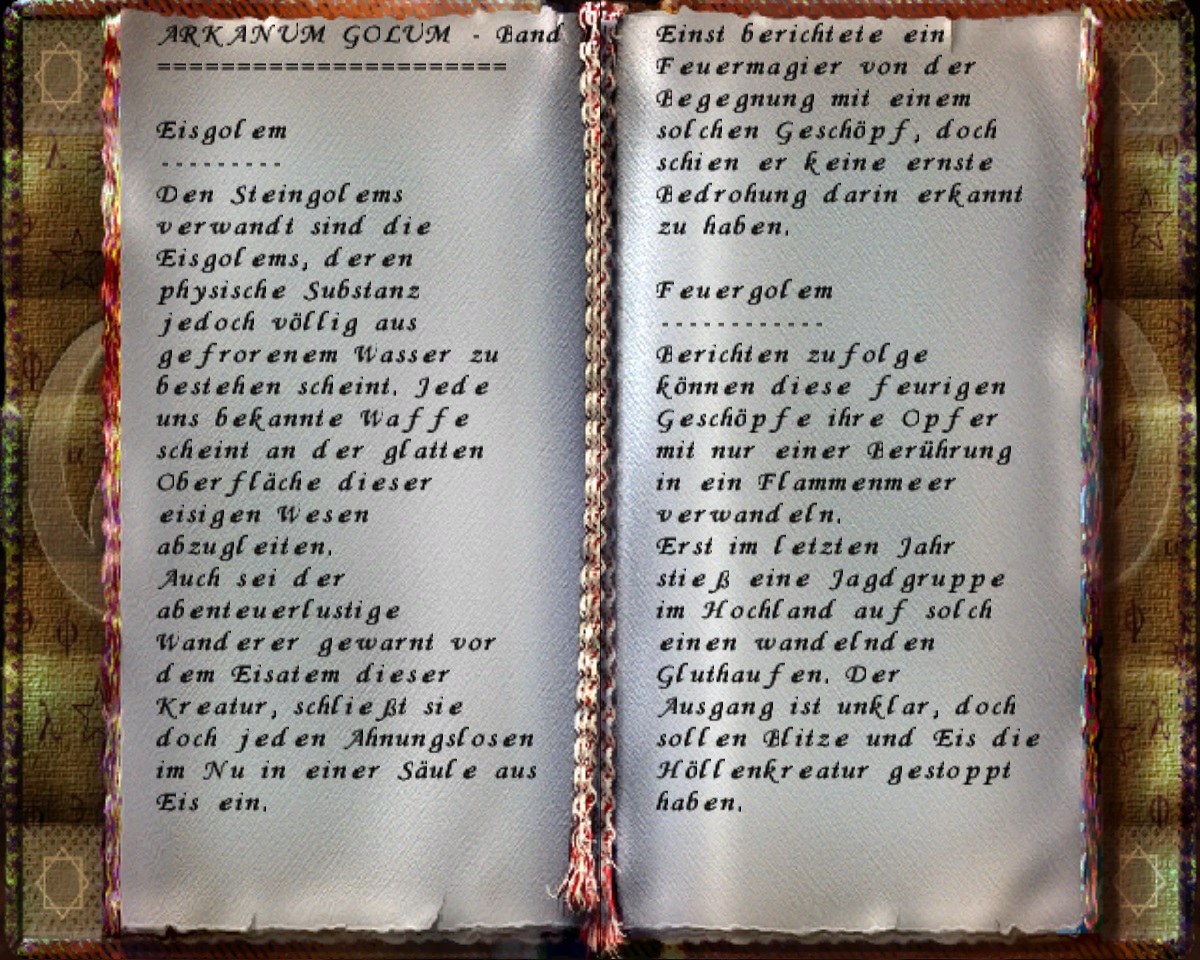 ARKANUM GOLUM - Band
======================
Eisgolem
---------
Den Steingolems
verwandt sind die
Eisgolems, deren
physische Substanz
jedoch völlig aus
gefrorenem Wasser zu
bestehen scheint. Jede
uns bekannte Waffe
scheint an der glatten
Oberfläche dieser
eisigen Wesen
abzugleiten.
Auch sei der
abenteuerlustige
Wanderer gewarnt vor
dem Eisatem dieser
Kreatur, schließt sie
doch jeden Ahnungslosen
im Nu in einer Säule aus
Eis ein.
Einst berichtete ein
Feuermagier von der
Begegnung mit einem
solchen Geschöpf, doch
schien er keine ernste
Bedrohung darin erkannt
zu haben.
Feuergolem
------------
Berichten zufolge
können diese feurigen
Geschöpfe ihre Opfer
mit nur einer Berührung
in ein Flammenmeer
verwandeln.
Erst im letzten Jahr
stieß eine Jagdgruppe
im Hochland auf solch
einen wandelnden
Gluthaufen. Der
Ausgang ist unklar, doch
sollen Blitze und Eis die
Höllenkreatur gestoppt
haben.